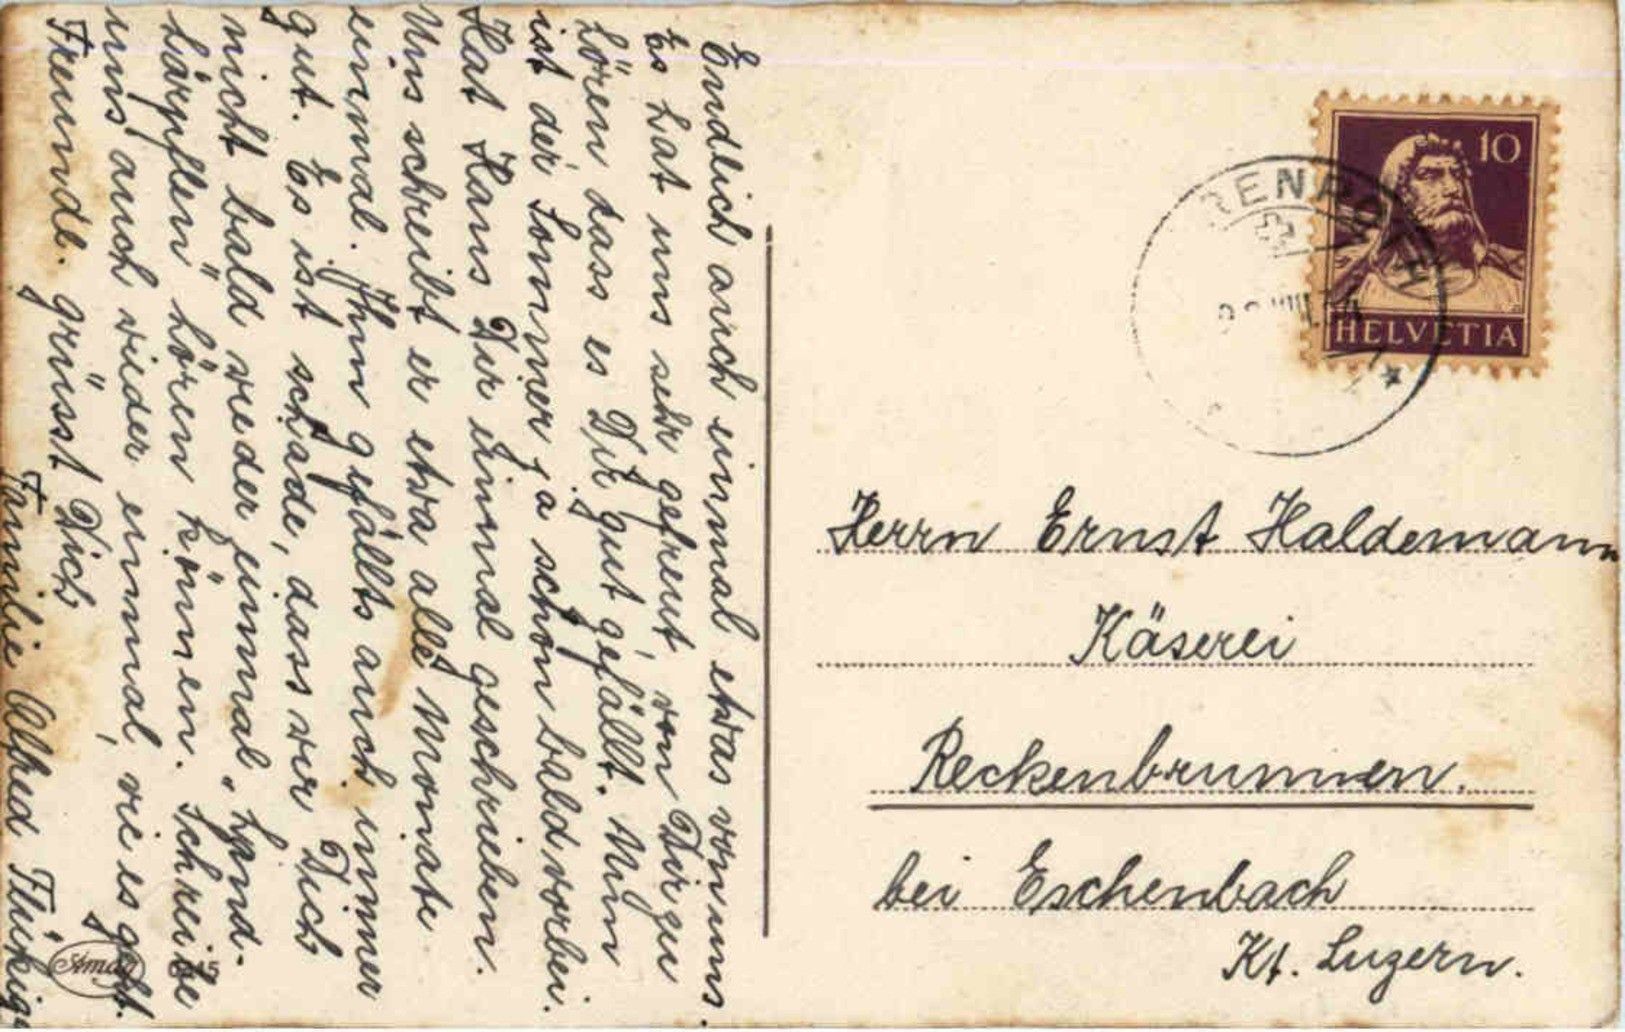 Endlich auch einmal etwas von uns.
Es hat uns sehr gefreut von Dir zu
hören dass es Dir gut gefällt. Nun
ist der Sommer ja schon bald vorbei.
Hat Hans Dir einmal geschrieben.
Uns schreibt er etwa alle Monate
einmal. Ihm gefällts auch immer
gut. Es ist schade, dass wir Dich
nicht bald wieder einmal „handhärpflen" hören können. Schreibe
uns auch wieder einmal, wie es geht.
Freundl. grüsst Dich
Familie Alfred Flükig
Amag
10
HELVETIA
Herrn Ernst Haldemann
Käserei
Reckenbrunnen.
bei Eschenbach
Kt. Luzern.